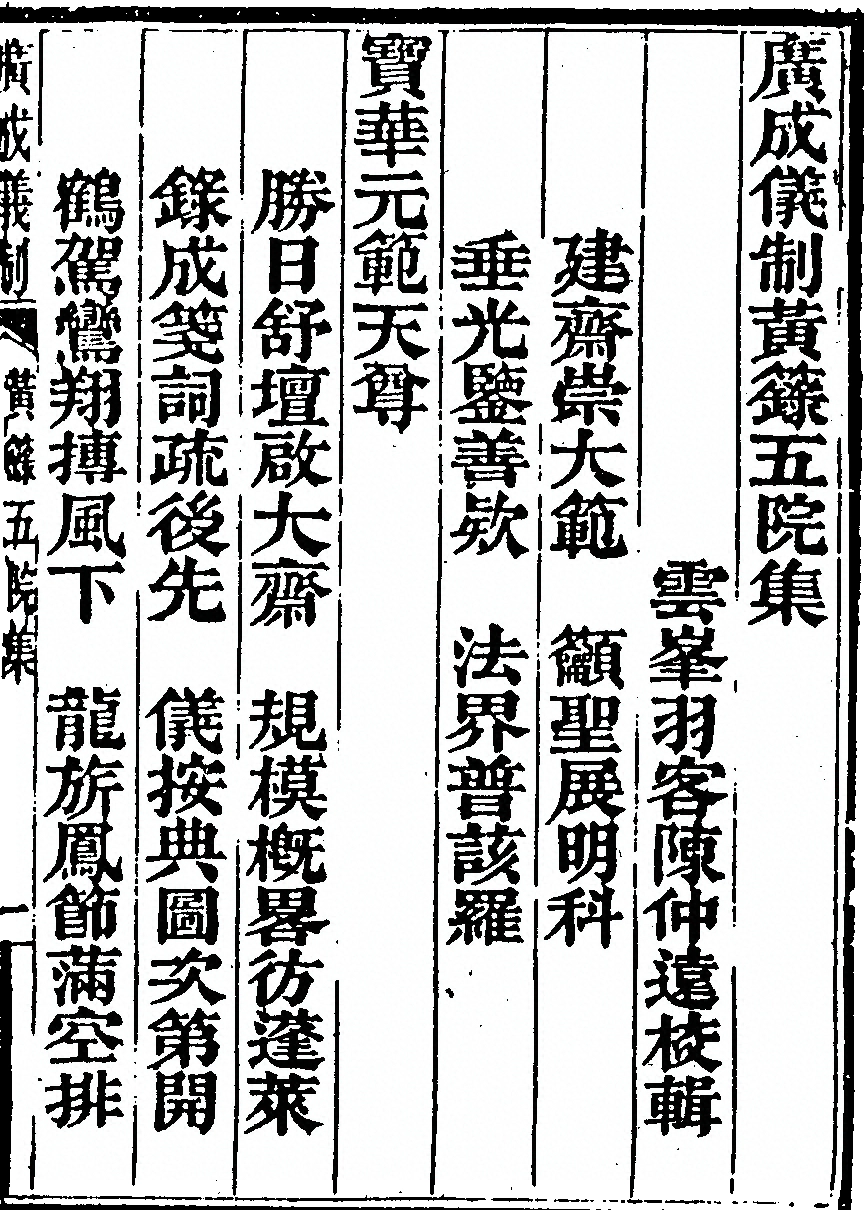 廣成儀制黃籙五院集
雲峯羽客陳仲遠校輯
建齋崇大範　籲聖展明科
垂光鑒善欵　法界普該羅
寶華元範天尊
勝日舒壇啟大齋　規模槪畧彷蓬萊
錄成箋詞疏後先　儀按典圖次第開
鶴駕鸞翔摶風下　龍旂鳳節滿空排
廣成儀制　黃籙五院集　一